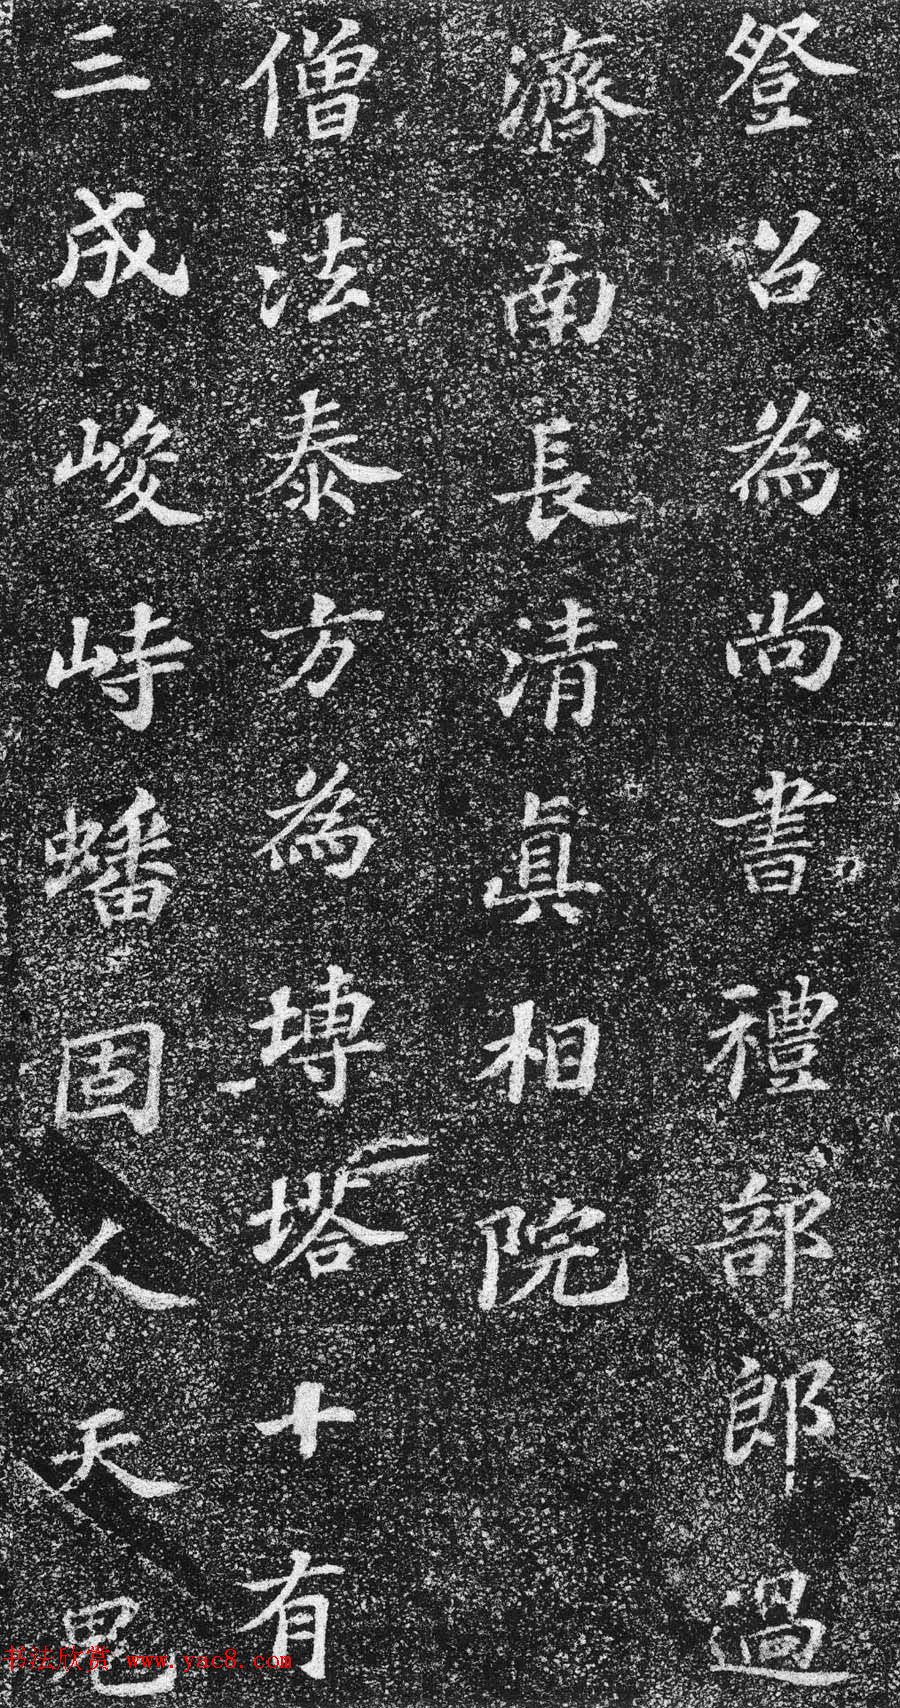 登召為尚書禮部郎過
濟南長清真相院
僧法泰方為塼塔十有
三成峻峙蟠固人天鬼
书法欣赏 www.yac8.com